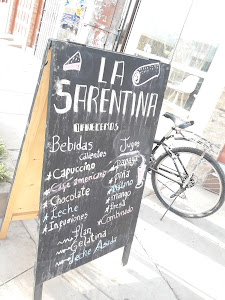 LA
SARENTINA
OFRECEMOS
Bebidas
Calientes
*Capuccino
*Café americano
*Chocolate
*Leche
*Infusiones
Jugos
*Papaya
*Piña
*Plátano
*Mango
*Fresa
*Combinado
Flan
Gelatina
Leche Asada